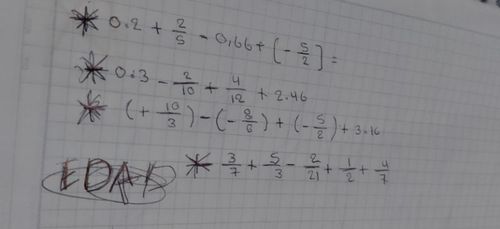 * 0.2 + 2/5 - 0,66 + [- 5/2] =
* 0.3 - 2/10 + 4/12 + 2.46
* (+ 10/3) - (- 8/6) + (- 5/2) + 3.16
EDAI * 3/7 + 5/3 - 2/21 + 1/2 + 4/7